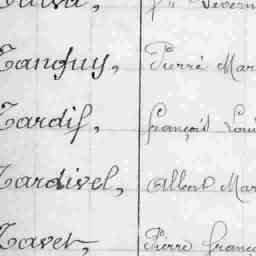 Tanguy, Pierre Mar
Tardif, François Loui
Tardivel, Albert Mar
Tavet, Pierre franço